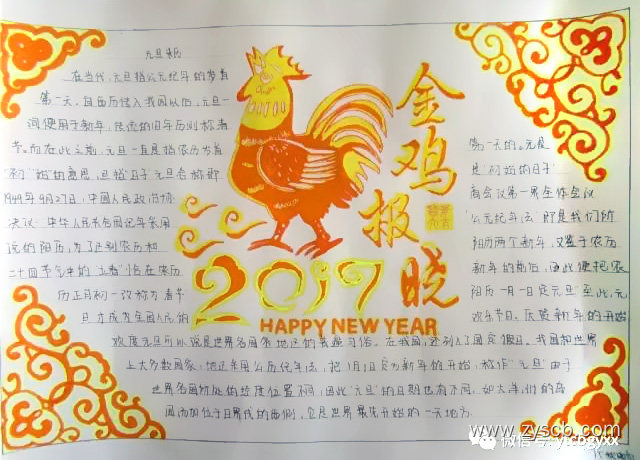 元旦来历
在当代,元旦指公元纪年的岁首
第一天。自西历传入我国以后,元旦一
词便用于新年,传统的旧年历则称春
节。而在此之前,元旦一直是指农历岁首
第一天的。元是
"初""始"的意思,旦指"日子",元旦合称即
是"初始的日子"
1949年9月27日,中国人民政治协
商会议第一届全体会议
决议:"中华人民共和国纪年采用
公元纪年法",即是我们所
说的阳历,为了区别农历和
阳历两个新年,又鉴于农历
二十四节气中的"立春"恰在农历
新年的前后,因此便把农
历正月初一改称为"春节"
阳历一月一日定元旦"至此,元
旦才成为全国人民的
欢乐节日。庆贺新年的开始
欢度元旦可以说是世界各国各地区的普遍习俗。在我国,还列入了国定假日。我国和世界
上大多数国家,地区采用公历纪年法,把1月1日定为新年的开始,称作"元旦"由于
世界各国所处的经度位置不同,因此"元旦"的日期也有不同,如大洋洲的
位于日界线的西侧,它是世界最先开始的一天地方
金鸡报晓
2017
HAPPY NEW YEAR
www.zyscb.com
微信号: ytcbgyxx